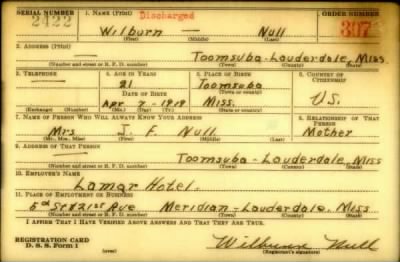 SERIAL NUMBER 1. NAME (Print) Discharged ORDER NUMBER
2422 Wilburn — Null 397
(First) (Middle) (Last)
2. ADDRESS (Print)
— Toomsuba-Lauderdale, Miss.
(Number and street or R. F. D. number) (Town) (County) (State)
3. TELEPHONE 4. AGE IN YEARS 5. PLACE OF BIRTH 6. COUNTRY OF CITIZENSHIP
— 21 Toomsuba
DATE OF BIRTH (Town or county)
Apr 7-1919 Miss. U.S.
(Exchange) (Number) (Mo.) (Day) (Yr.) (State or country)
7. NAME OF PERSON WHO WILL ALWAYS KNOW YOUR ADDRESS 8. RELATIONSHIP OF THAT PERSON
Mrs J. F. Null Mother
(Mr., Mrs., Miss) (First) (Middle) (Last)
9. ADDRESS OF THAT PERSON
— Toomsuba-Lauderdale, Miss
(Number and street or R. F. D. number) (Town) (County) (State)
10. EMPLOYER'S NAME
Lamar Hotel.
11. PLACE OF EMPLOYMENT OR BUSINESS
21st Ave Meridian-Lauderdale, Miss
(Number and street or R. F. D. number) (Town) (County) (State)
I AFFIRM THAT I HAVE VERIFIED ABOVE ANSWERS AND THAT THEY ARE TRUE.
REGISTRATION CARD
D. S. S. Form 1 Wilburn Null
(Registrant's signature)